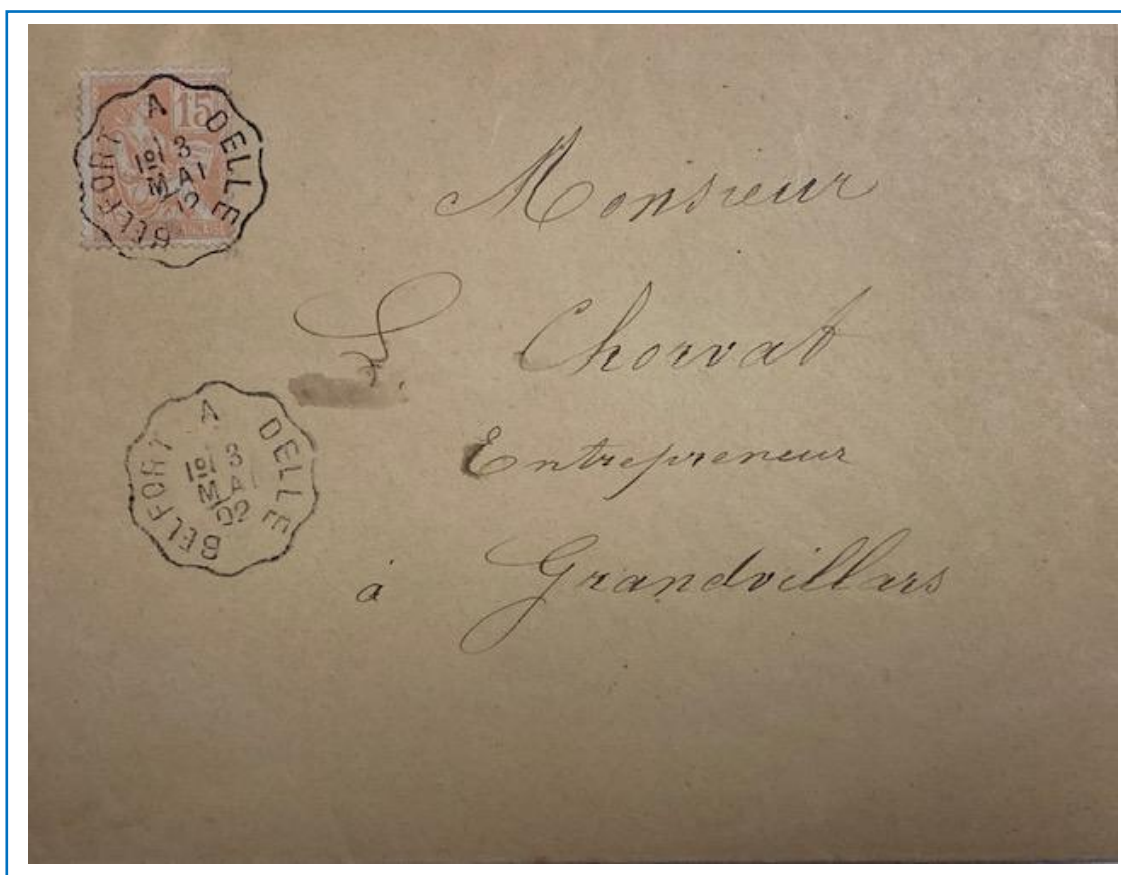 15
BELFORT A DELLE
1º/ 3
MAI
02
Monsieur
L. Chorvat
Entrepreneur
à Grandvillars
BELFORT A DELLE
1º/ 3
MAI
02